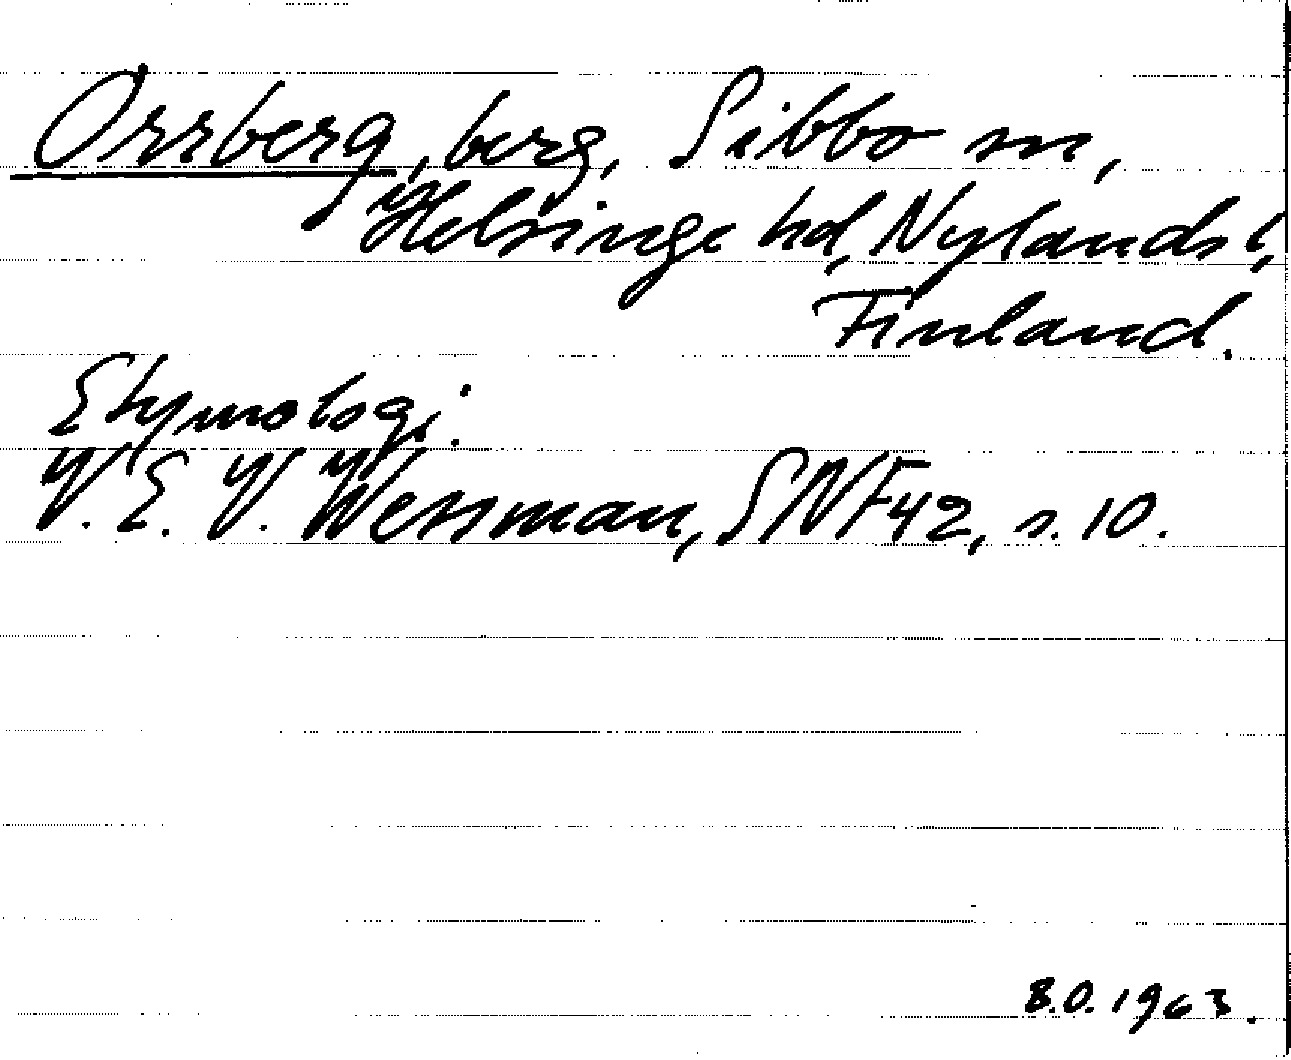 Orrberg, berg, Sibbo sn,
Helsinge hd, Nylands l,
Finland.
Etymologi.
V. E. V. Wessman, SNF 42, s. 10.
B.O. 1963.